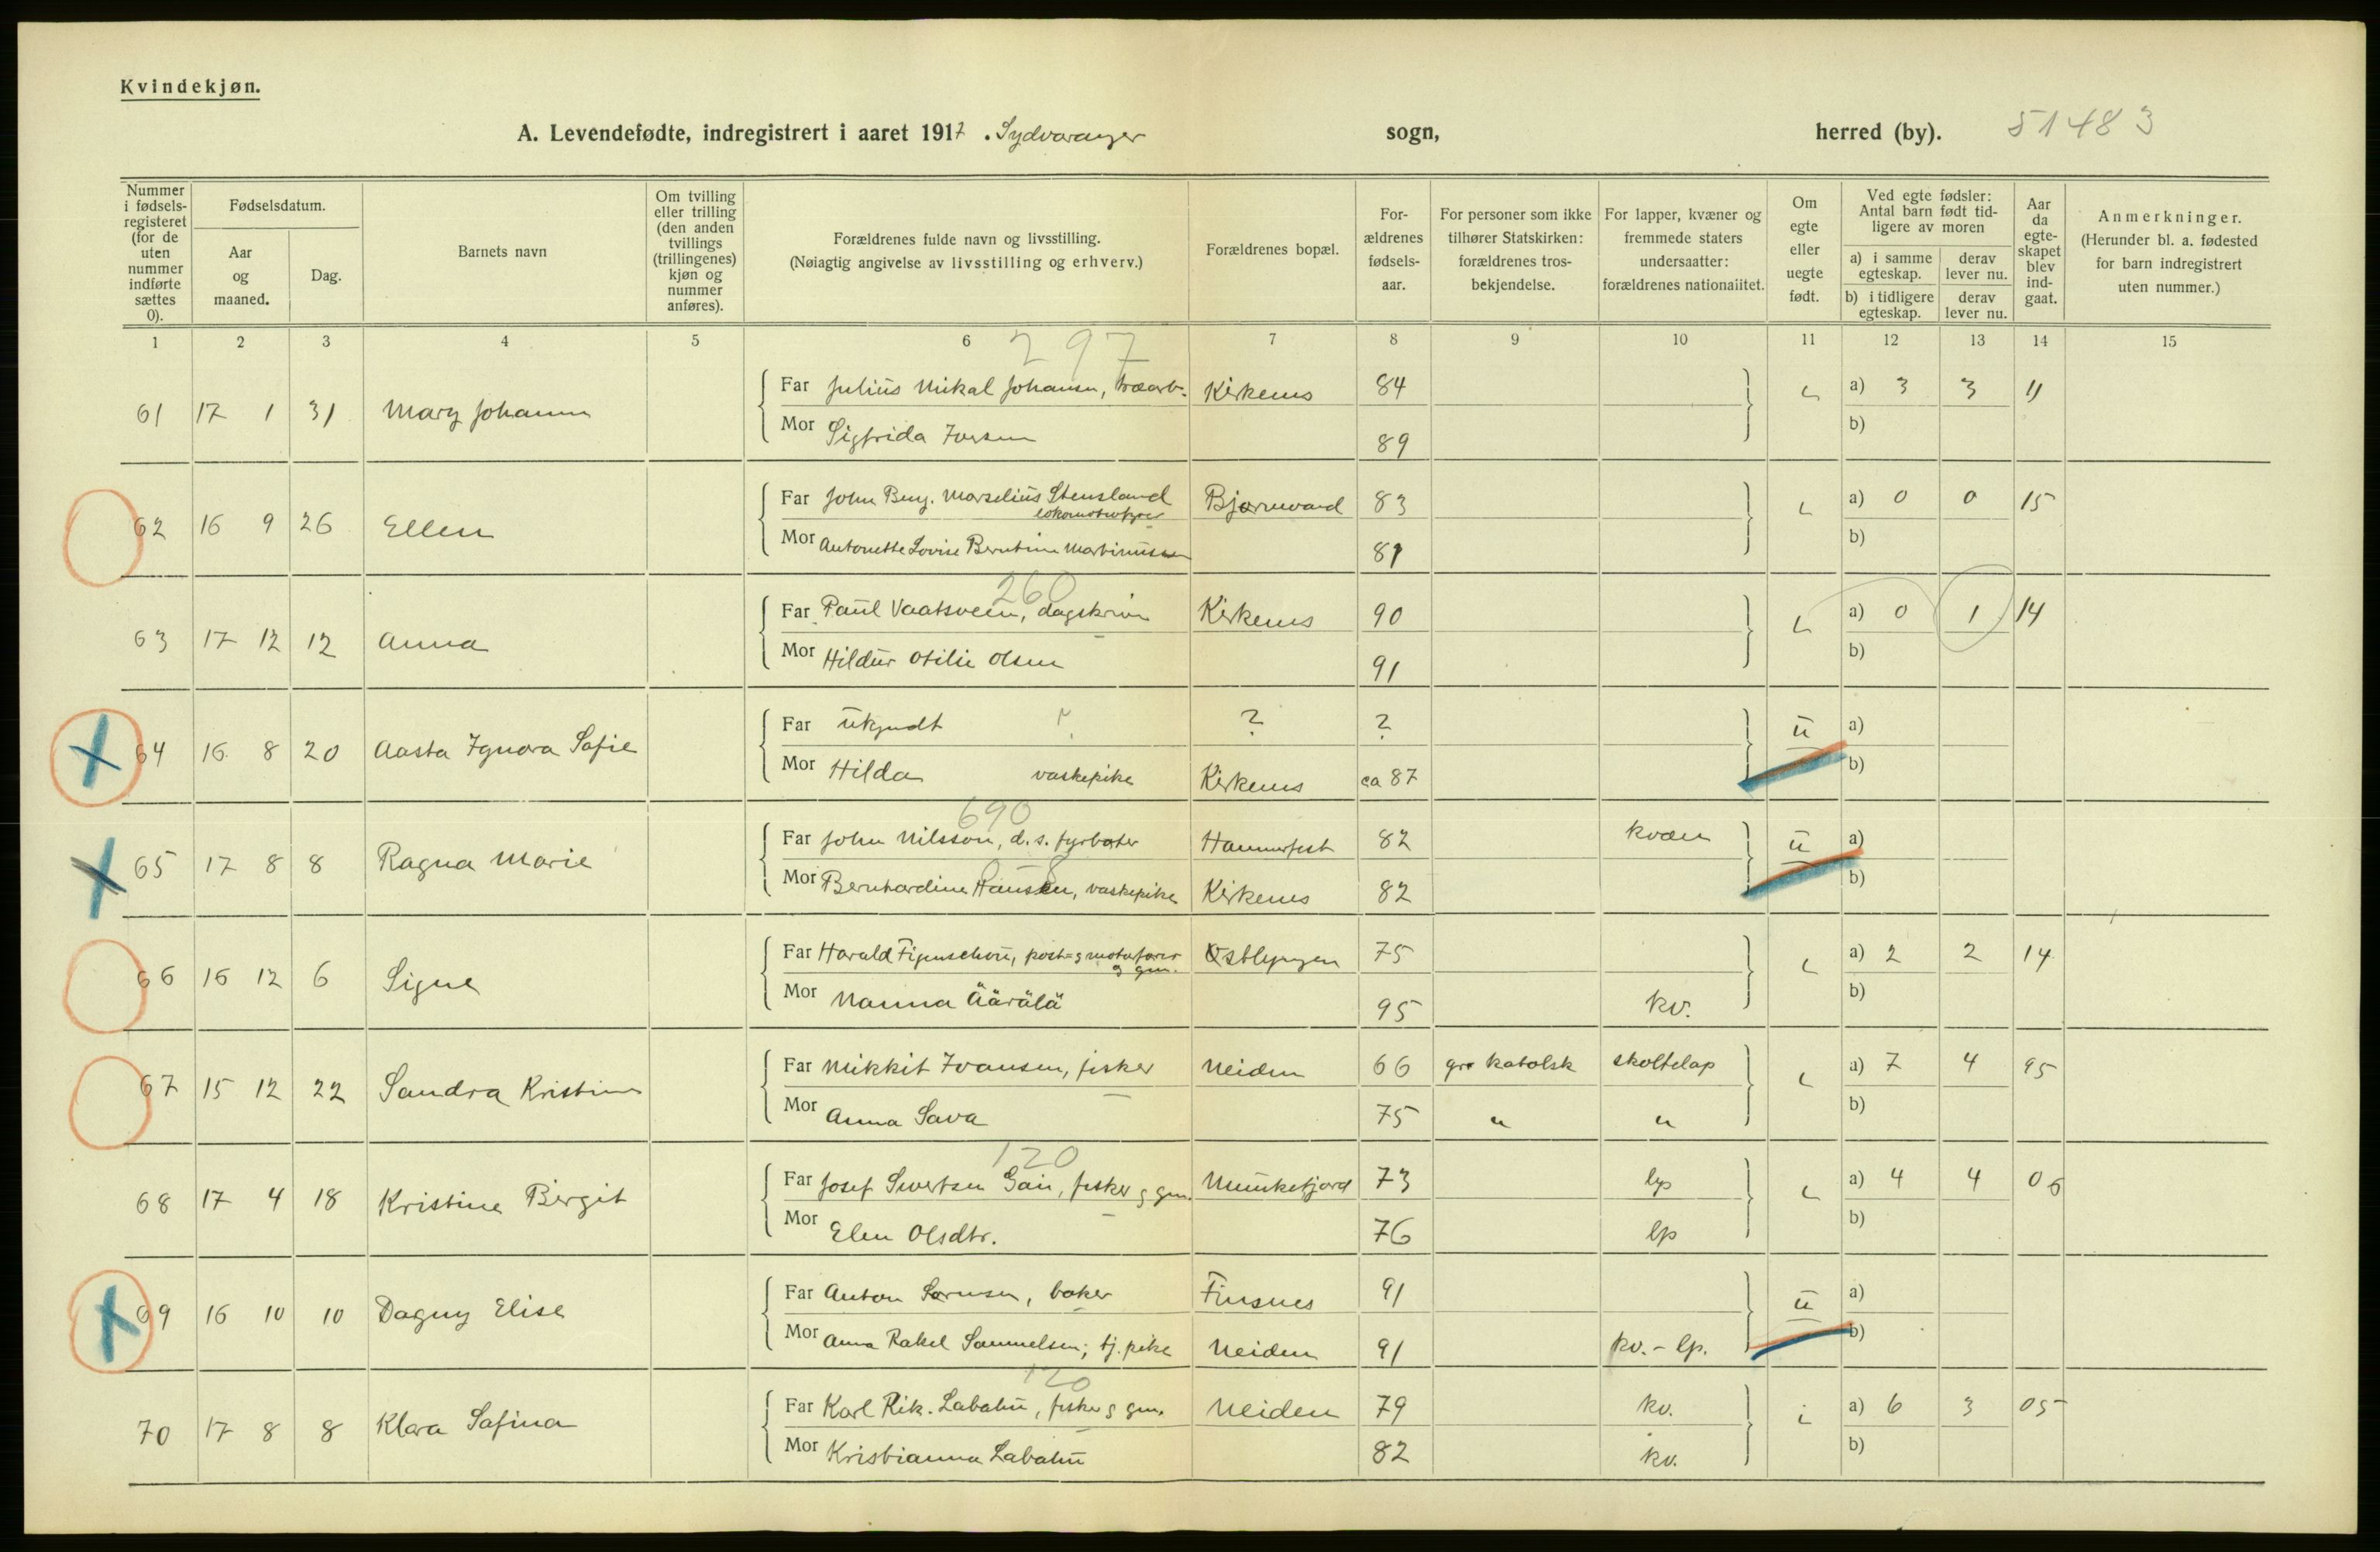 Kvindekjøn.
A. Levendefødte, indregistrert i aaret 1917. Sydvaranger sogn, herred (by). 51483
Nummer i fødsels-registeret (for de uten nummer indførte sættes 0).
Fødselsdatum.
Aar og maaned.
Dag.
Barnets navn
Om tvilling eller trilling (den anden tvillings (trillingenes) kjøn og nummer anføres).
Forældrenes fulde navn og livsstilling.
(Nøiagtig angivelse av livsstilling og erhverv.)
Forældrenes bopæl.
For-ældrenes fødsels-aar.
For personer som ikke tilhører Statskirken: forældrenes tros-bekjendelse.
For lapper, kvæner og fremmede staters undersaatter: forældrenes nationalitet.
Om egte eller uegte født.
Ved egte fødsler: Antal barn født tid-ligere av moren
a) i samme egteskap. derav lever nu.
b) i tidligere egteskap. derav lever nu.
Aar da egte-skapet blev ind-gaat.
Anmerkninger.
(Herunder bl. a. fødested for barn indregistrert uten nummer.)
1 2 3 4 5 6 7 8 9 10 11 12 13 14 15
297
61 17 1 31 Mary Johanne Far Julius Mikal Johansen, træarb. Kirkenes 84 a) 3 3 11
Mor Sigfrida Iversen 89 b)
62 16 9 26 Ellen Far John Berg. Marselius Stensland Bjørnevand 83 a) 0 0 15
lokomotivfyrer
Mor Antonette Lovise Berntine Martinussen 81 b)
260
63 17 12 12 Anna Far Paul Vaatsveen, dagskriv Kirkenes 90 a) 0 1 14
Mor Hildur Otilie Olsen 91 b)
64 16 8 20 Aasta Ignora Sofie Far Ukjendt ? ? ? u a)
Mor Hilda vaskepike Kirkenes ca 87 b)
690
65 17 8 8 Ragna Marie Far John Nilsson, d.s. fyrbøter Hammerfest 82 kvæn u a)
Mor Bernhardine Hansen, vaskepike Kirkenes 82 b)
66 16 12 6 Signe Far Harald Figenschou, post= g motorfører Østlyngen 75 a) 2 2 14
g gm.
Mor Nanna Äärälä 95 kv. b)
67 15 12 22 Sandra Kristine Far Mikkit Ivansen, fisker Neiden 66 gr. katolsk skoltelap a) 7 4 95
Mor Anna Sava 75 " " b)
120
68 17 4 18 Kristine Bergit Far Josef Sivertsen Gain, fisker g gm. Munkefjord 73 lp a) 4 4 06
Mor Elen Olsdtr. 76 lp b)
69 16 10 10 Dagny Elise Far Anton Sørensen, baker Finsnes 91 u a)
Mor Anna Rakel Sammelsen; tj. pike Neiden 91 kv. - lp. b)
120
70 17 8 8 Klara Safina Far Karl Rik. Labahu, fisker g gm. Neiden 79 kv. a) 6 3 05
Mor Kristianna Labahu 82 kv. b)